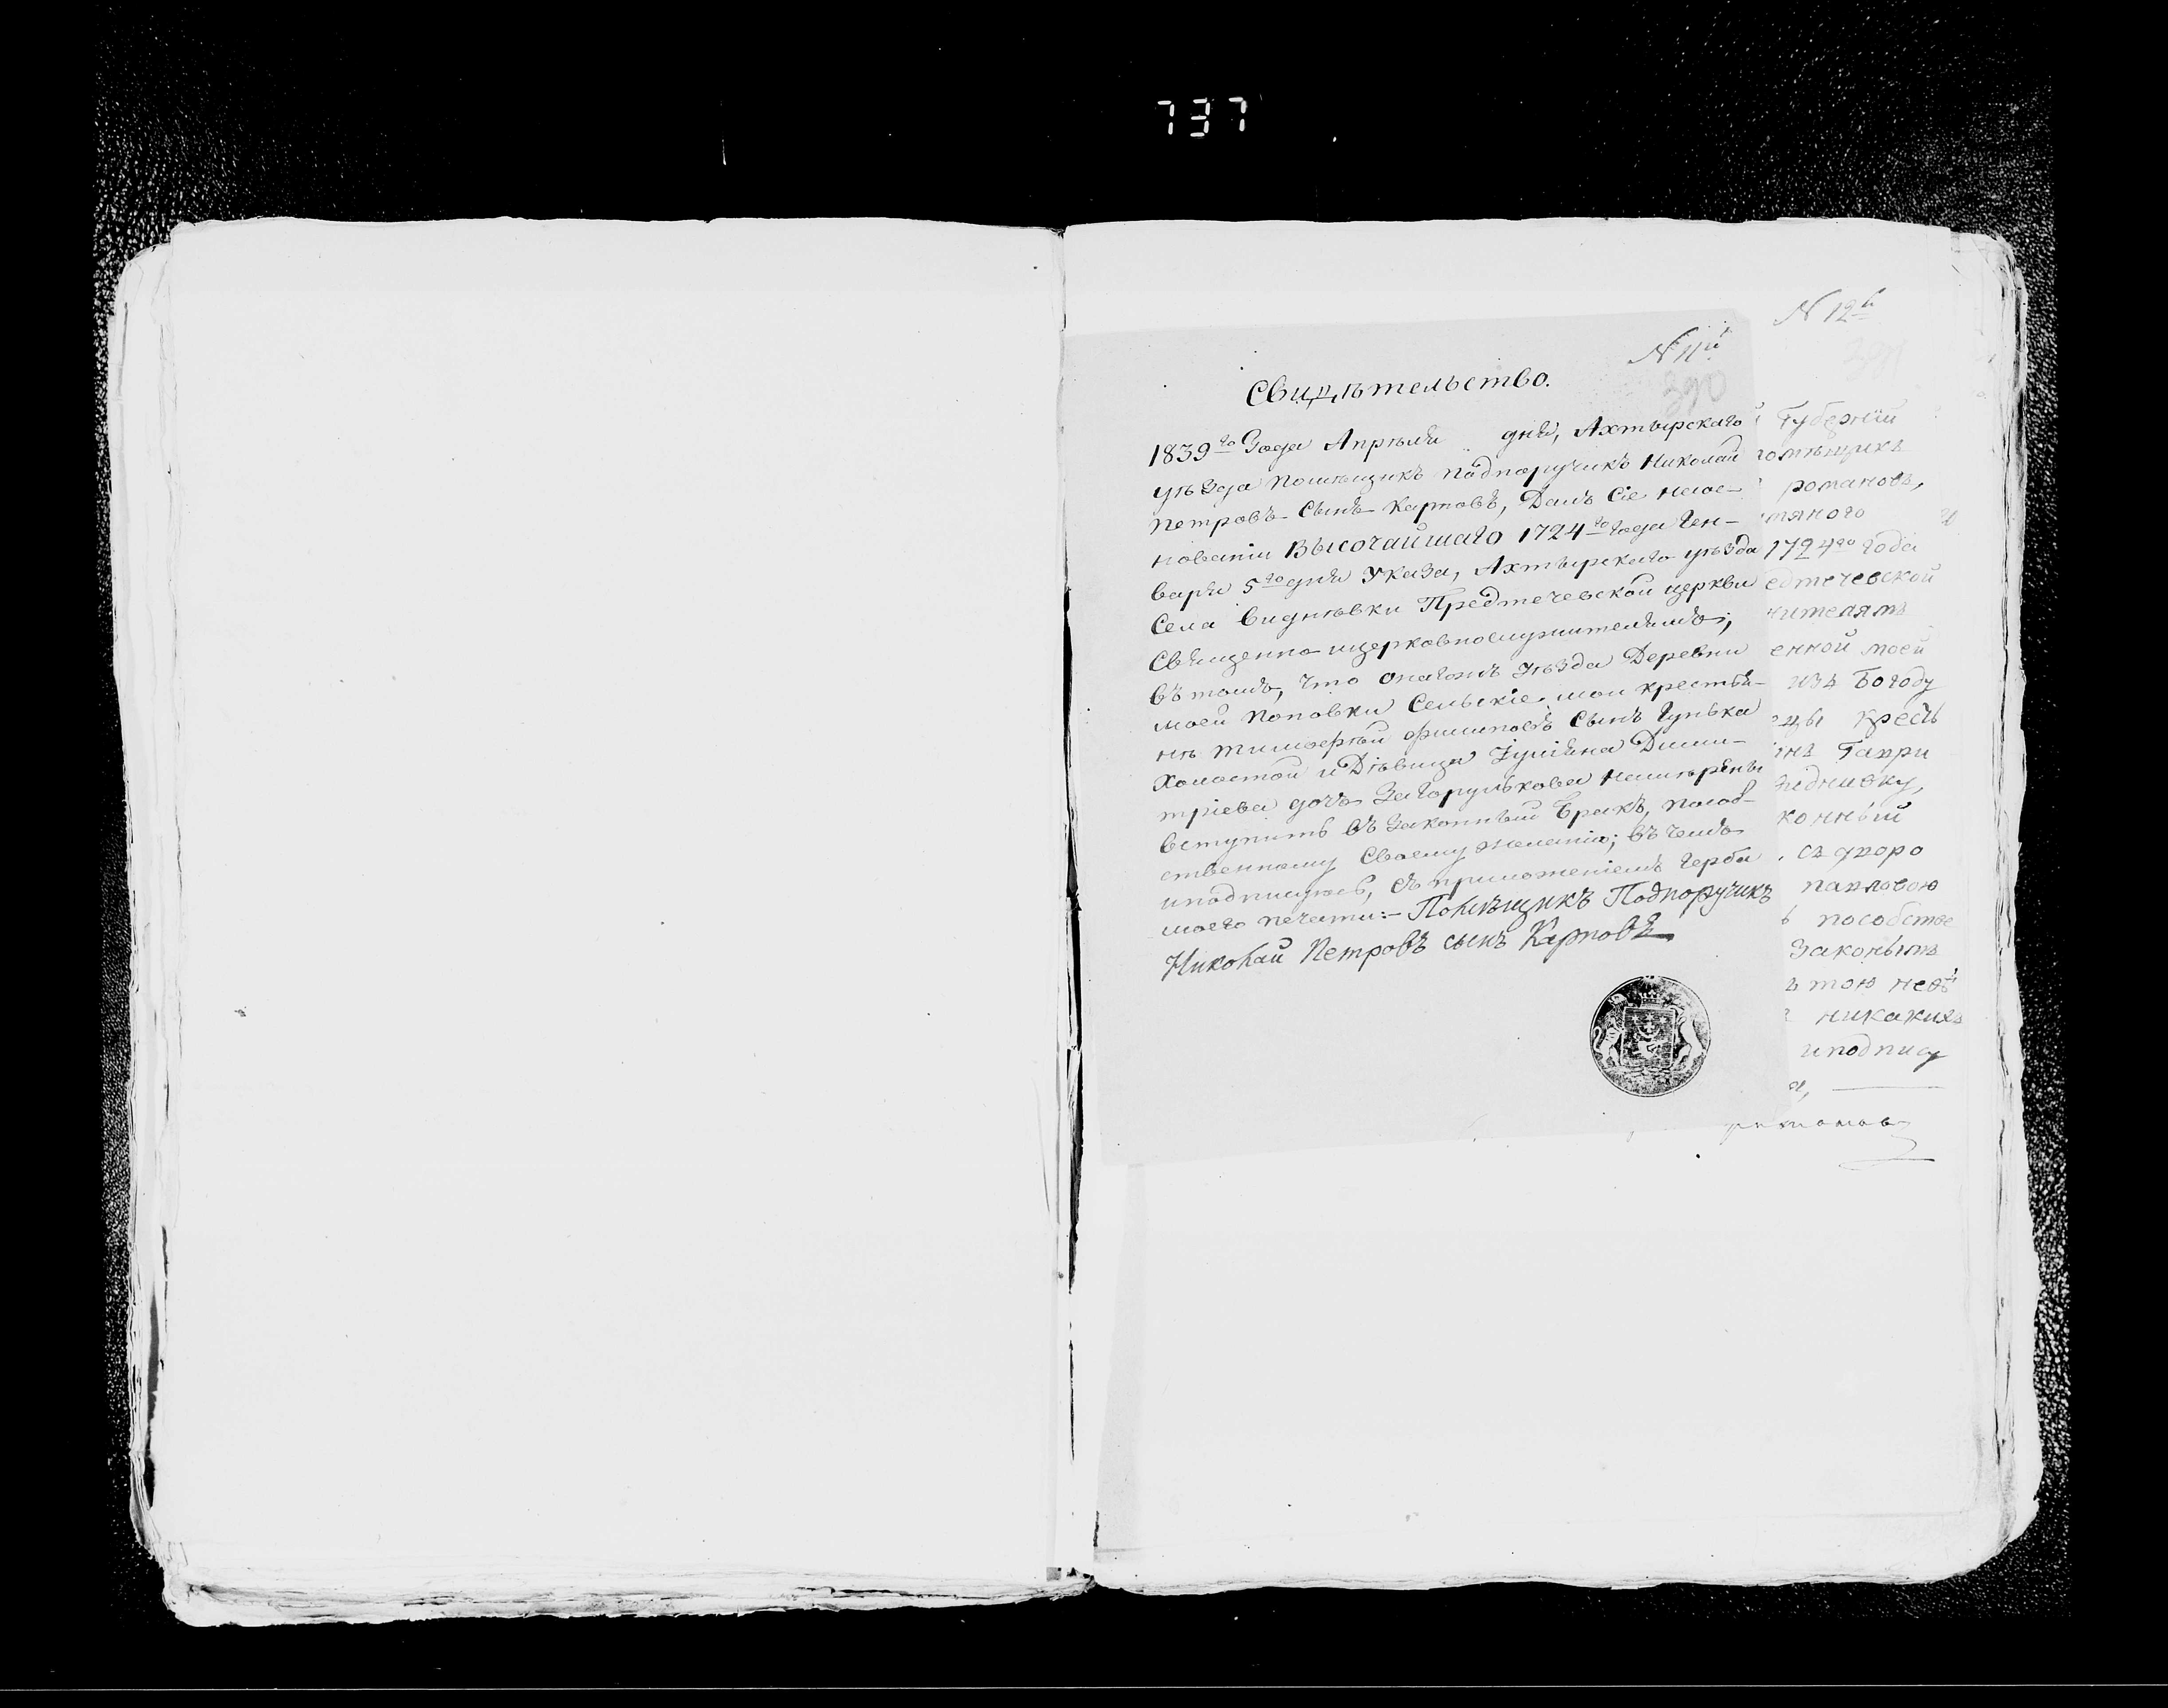 737
N 11й
390
Свидѣтельство.
1839го Года Апрѣля дня, Ахтырскаго
уѣзда помѣщикъ подпоручикъ Николай
Петровъ Сынъ Карповъ, Далъ Сіе на ос-
нованіи Высочайшаго 1724го года Ген-
варя 5го дня Указа, Ахтырскаго уѣзда
Села Видновки Предтечевской церкви
Священно ицерковнослужителямъ;
въ томъ, что онагожъ Уѣзда Деревни
моей Поповки Сельскіе мои крестья-
нѣ Тимофѣй Филиповъ Сынъ Гунька
Холостой и Дѣвица Іуліяна Дими-
тріева дочь Загорулькова намѣрены
вступить въ Законный Бракъ, по соб-
ственному Своему желанію; въ чемъ
иподписуюсь, съ приложеніемъ герба
моего печати:- Помѣщикъ Подпоручикъ
Николай Петровъ сынъ Карповъ
N 12й
391
Губернии
помѣщикъ
романовъ,
1724го года
едтечевской
жителямъ
енной моей
изъ Богоду
Кресть
Гаври
Видневку,
конный
съ дворо
павловою
пособстве
Законымъ
тою невѣ
никакихъ
иподпису
романов